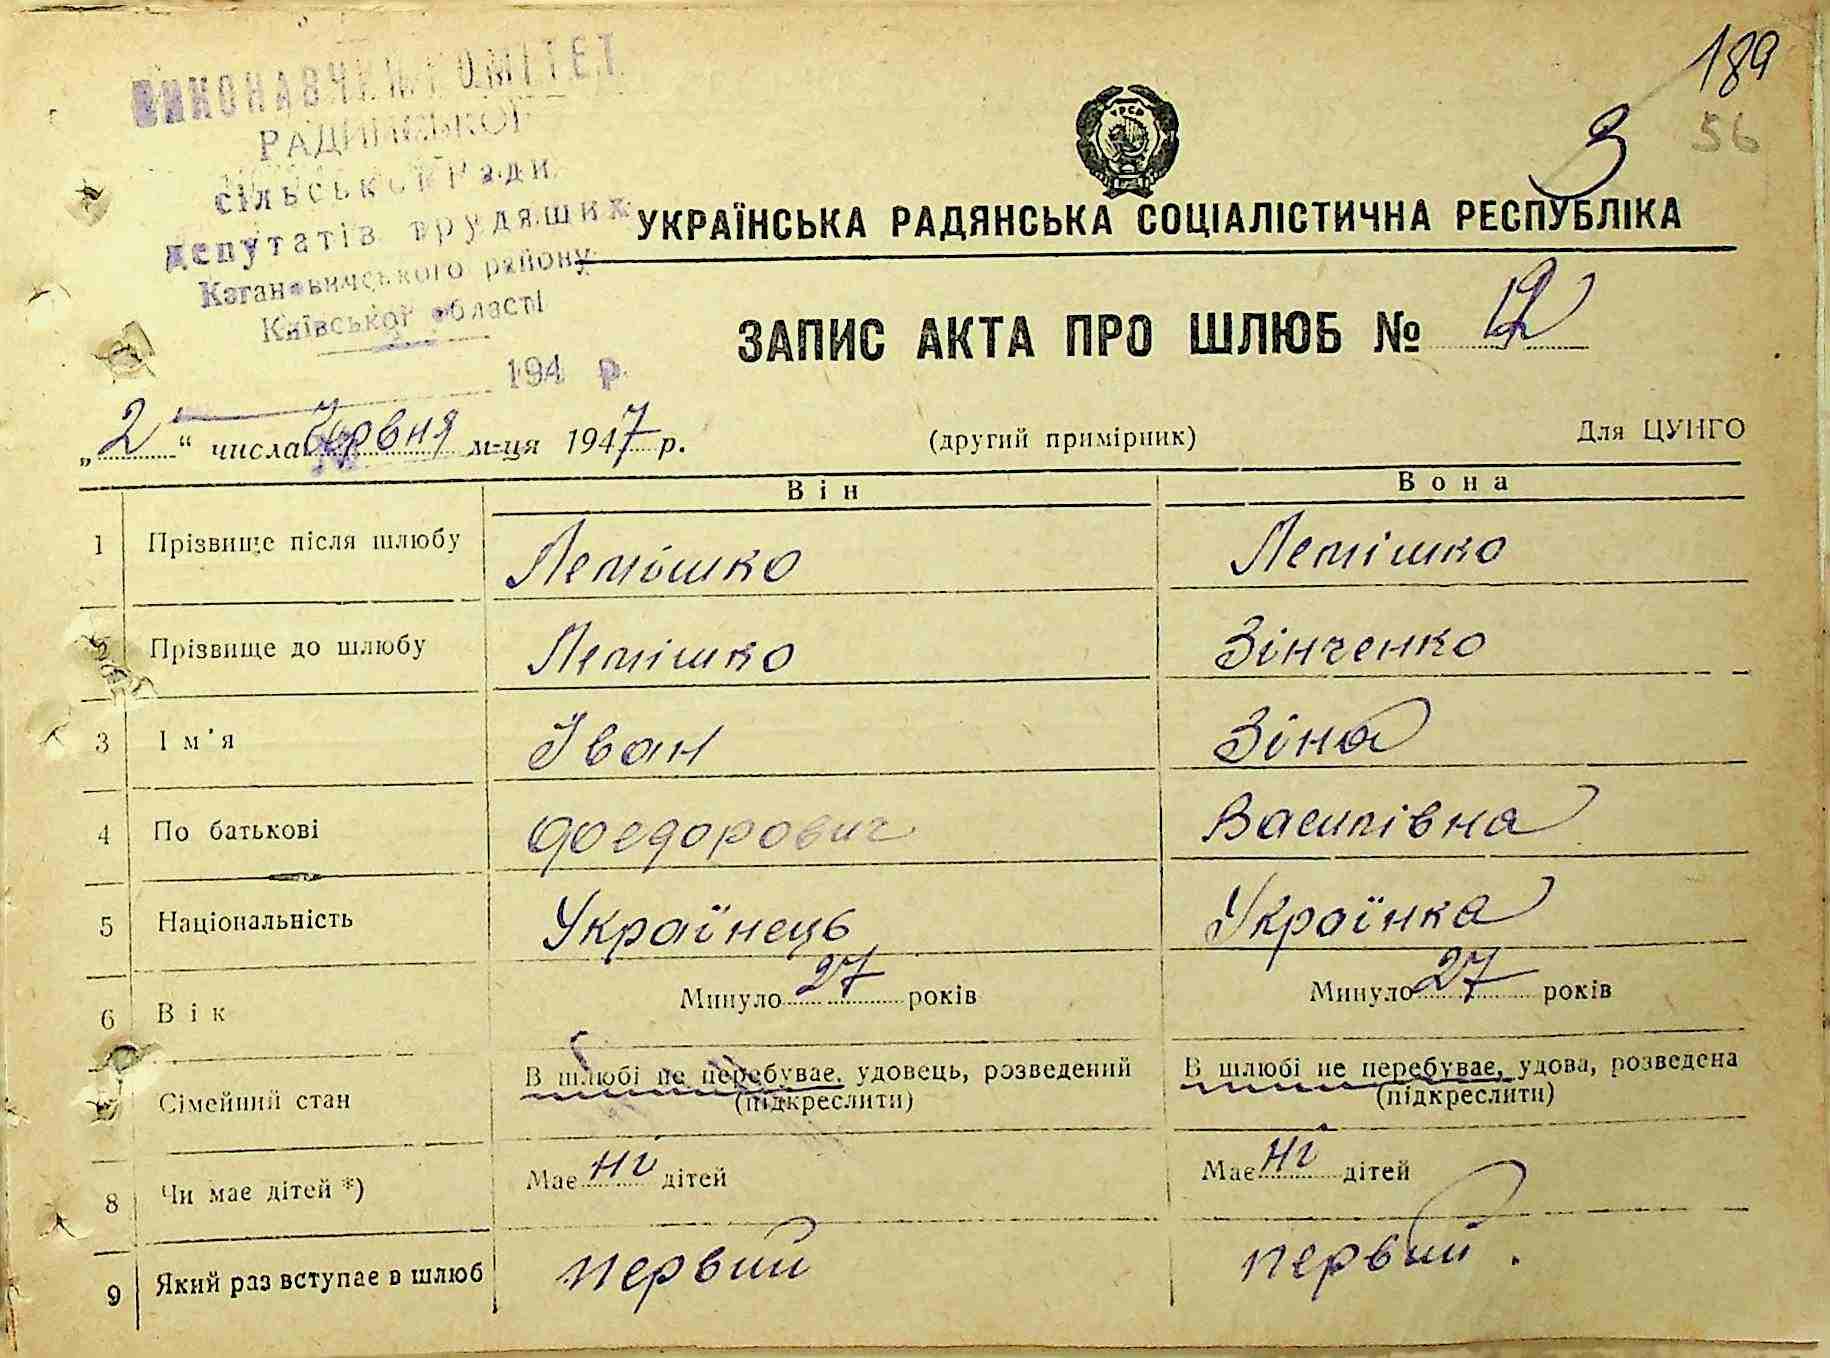 189
56
3
ВИКОНАВЧИЙ КОМІТЕТ
сільської Ради
депутатів трудящих
Кагановичського району
Київської області
194 р.
УРСР
УКРАЇНСЬКА РАДЯНСЬКА СОЦІАЛІСТИЧНА РЕСПУБЛІКА
ЗАПИС АКТА ПРО ШЛЮБ № 12
„2“ числа Червня м-ця 1947 р.
(другий примірник)
Для ЦУНГО
Він Вона
1 Прізвище після шлюбу Лемішко Лемішко
Прізвище до шлюбу Лемішко Зінченко
3 Ім'я Іван Зіна
4 По батькові Федорович Василівна
5 Національність Українець Українка
6 Вік Минуло 27 років Минуло 27 років
Сімейний стан В шлюбі не перебуває, удовець, розведений (підкреслити) В шлюбі не перебуває, удова, розведена (підкреслити)
8 Чи має дітей *) Має ні дітей Має ні дітей
9 Який раз вступає в шлюб первий первий.